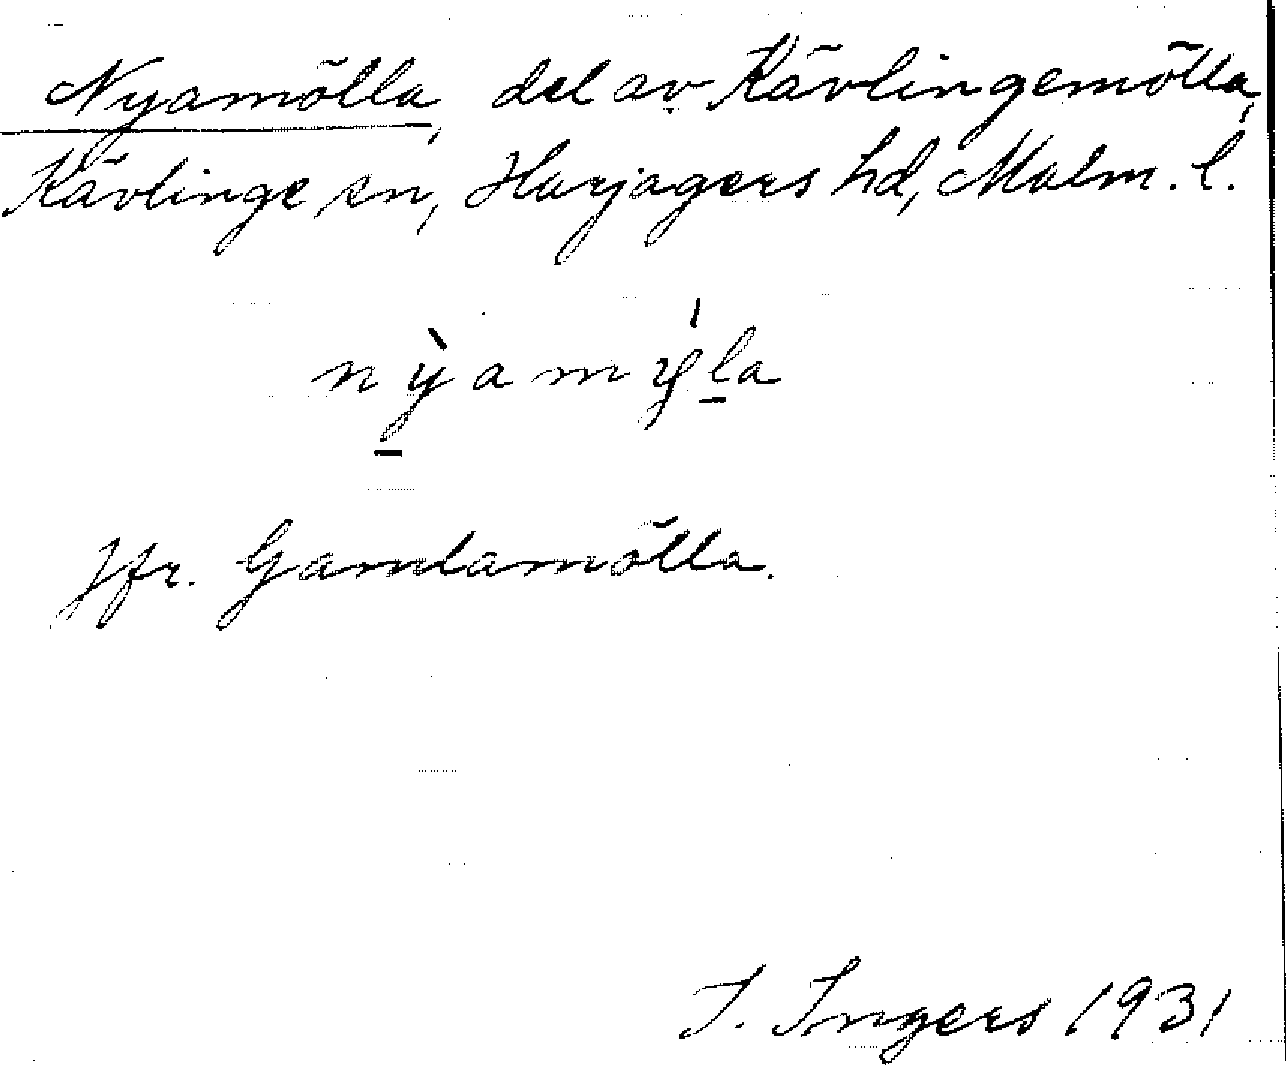 Nyamölla, del av Kävlingemölla,
Kävlinge sn, Harjagers hd, Malm. l.
Jfr. Gamlamölla.
I. Ingers 1931